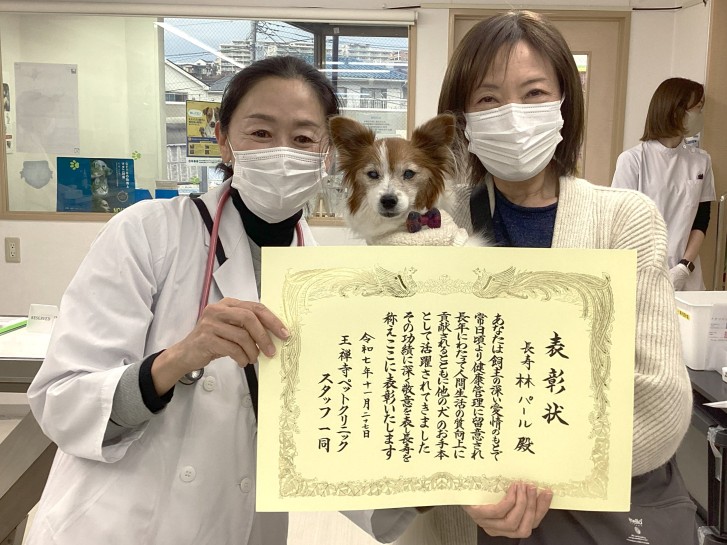 表彰状
長寿 林 パール 殿
あなたは飼主の深い愛情のもとで
常日頃より健康管理に留意され
長年にわたって人間生活の質向上に
貢献されるとともに他の犬のお手本
として活躍されてきました
その功績に深く敬意を表し長寿を
称えここに表彰いたします
令和七年十一月二七日
王禅寺ペットクリニック
スタッフ一同